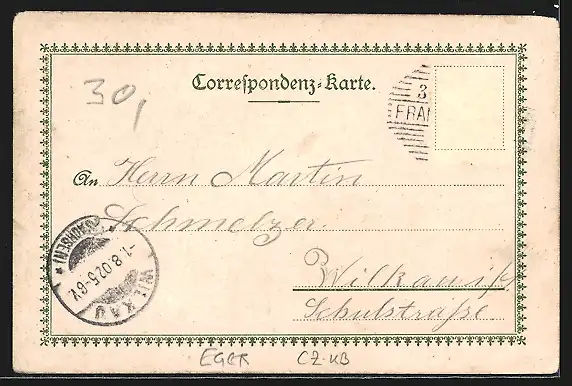 Correspondenz-Karte.
30,
3
FRAN
An Herrn Martin
Schmelzer
Wilkau i/S
Schulstraße
WILKAU
(SACHSEN)
-1.8.02.5-6V.
EGER CZ-KB